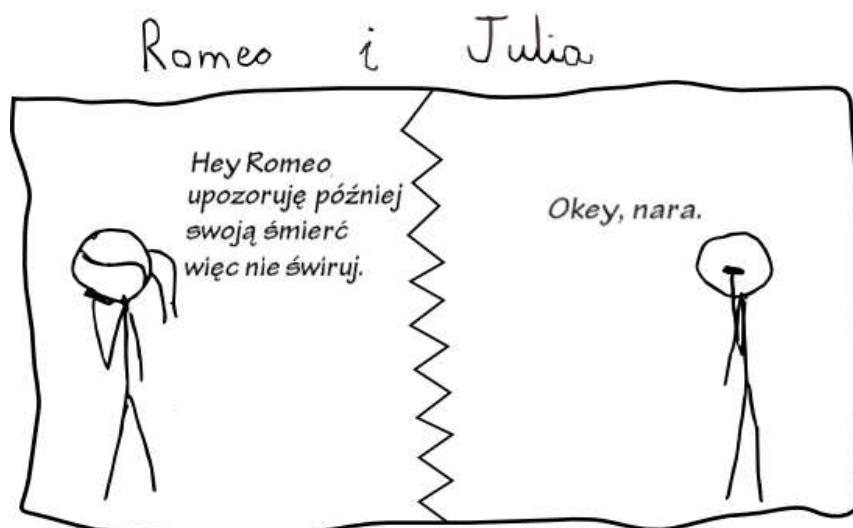 Romeo i Julia
Hey Romeo
upozoruję później
swoją śmierć
więc nie świruj.
Okey, nara.